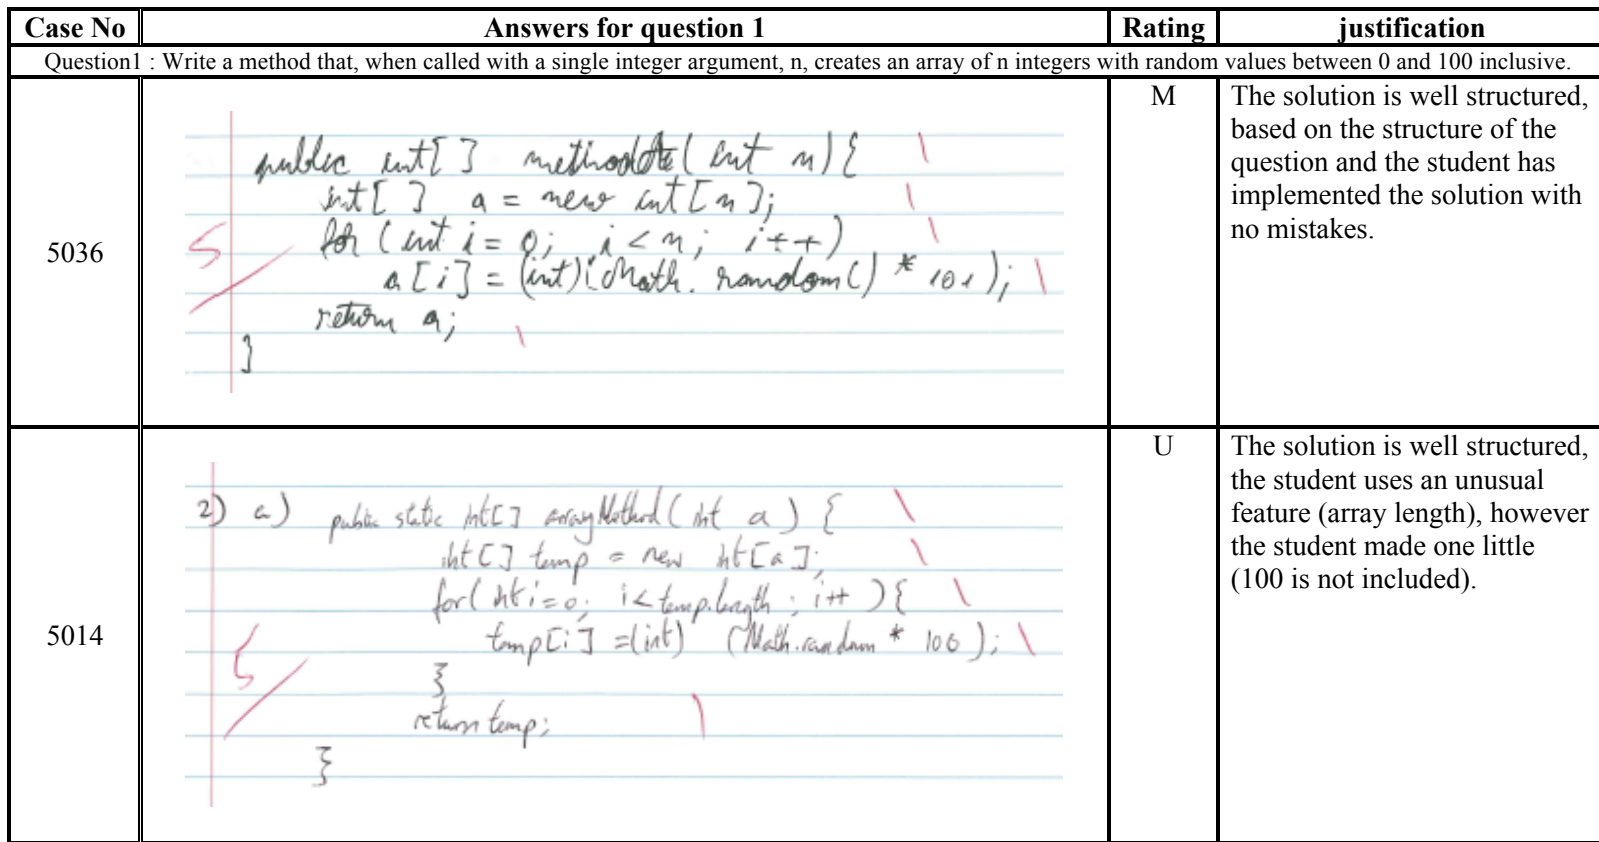 Case No Answers for question 1 Rating justification
Question1 : Write a method that, when called with a single integer argument, n, creates an array of n integers with random values between 0 and 100 inclusive.
5036
public int[] (int n){
int[] a = new int[n];
for (int i = 0; i < n; i++)
a[i] = (int)(Math.random() * 101);
return a;
}
5/
M
The solution is well structured,
based on the structure of the
question and the student has
implemented the solution with
no mistakes.
5014
2) a) public static int[] arrayMethod(int a) {
int[] temp = new int[a];
for(int i=0; i<temp.length; i++){
temp[i] =(int) (Math.random * 100);
}
return temp;
}
5/
U
The solution is well structured,
the student uses an unusual
feature (array length), however
the student made one little
(100 is not included).